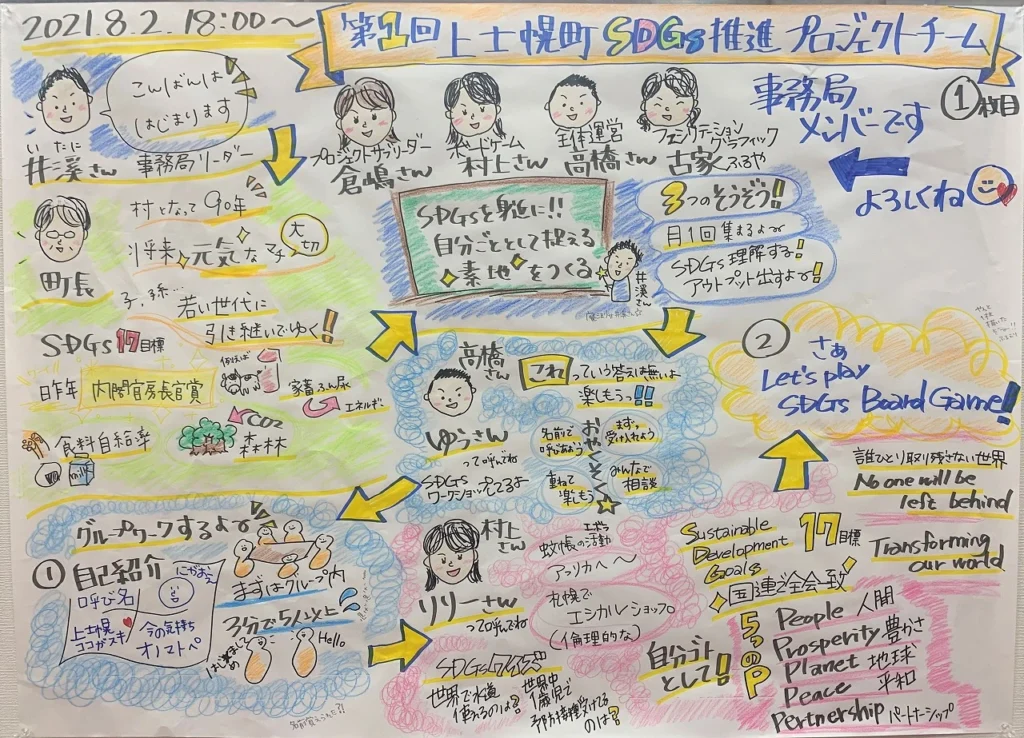 2021.8.2. 18:00〜
第1回 上士幌町 SDGs 推進 プロジェクトチーム
①枚目
こんばんは
はじまります
いたに
井溪さん
事務局リーダー
プロジェクトサブリーダー
倉嶋さん
ボードゲーム
村上さん
全体運営
高橋さん
ファシリテーション
グラフィック
古家 ふるや
事務局
メンバーです
よろしくね
町長
村となって90年
将来 元気な子
大切
子・孫…
若い世代に
引き継いでゆく!
SDGs 17目標
昨年
内閣官房長官賞
例えば
家畜ふん尿
エネルギー
食料自給率
milk
CO2
森林
SDGsを身近に!!
自分ごととして捉える
素地をつくる
井溪さん
3つのそうぞう!!
月1回集まるよ〜
SDGs 理解する!
アウトプット出すよ〜!
高橋さん
これっていう答えは無いよ
楽しもうっ!!
ゆうさん
って呼んでね
SDGs
ワークショップしてるよ
おやくそく
名前で
呼びあおう
まずっ
受け入れよう
重ねて
楽しもう
みんなで
相談
②
さあ
Let's play
SDGs Board Game!
グループワークするよ〜
① 自己紹介
呼び名
にがおえ
上士幌
ココがスキ
今の気持ち
オノマトペ
まずはグループ内
3分で5人以上
はじめまして
Hello
村上さん
リリーさん
って呼んでね
蚊帳の活動
アフリカへ〜
札幌で
エシカルショップ
(倫理的な)
SDGsクイズ
世界で水道
使えるのは?
世界中
1歳児で
予防接種受けてる
のは?
自分ゴト
として!
Sustainable
Development
Goals
17目標
国連で全会一致
5つのP
People 人間
Prosperity 豊かさ
Planet 地球
Peace 平和
Pertnership パートナーシップ
誰ひとり取り残さない世界
No one will be
left behind
Transforming
our world